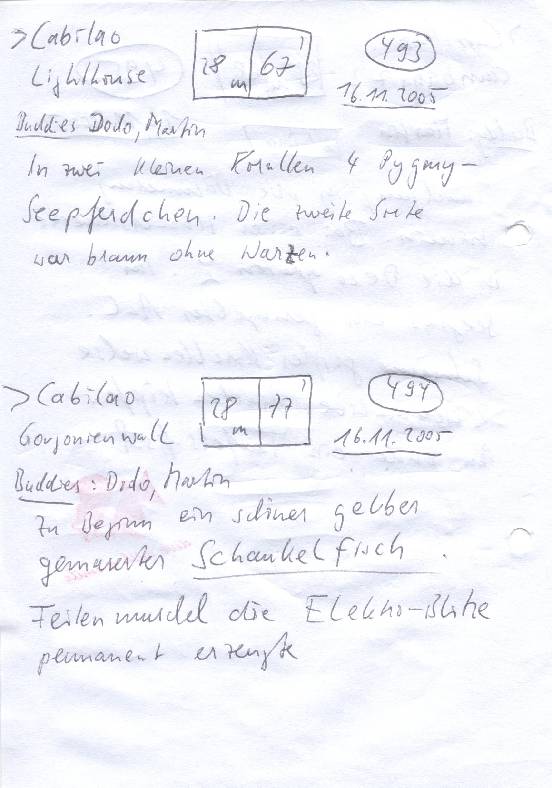 > Cabilao
Lighthouse
28 m 67'
493
16.11.2005
Buddies Dodo, Martin
In zwei kleinen Korallen 4 Pygmy-
Seepferdchen. Die zweite Sorte
war braun ohne Warzen.
> Cabilao
Gorgonienwall
28 m 77'
494
16.11.2005
Buddies: Dodo, Martin
Zu Beginn ein schöner gelber
gemaserter Schaukelfisch.
Feilenmuschel die Elektro-Blitze
permanent erzeugte